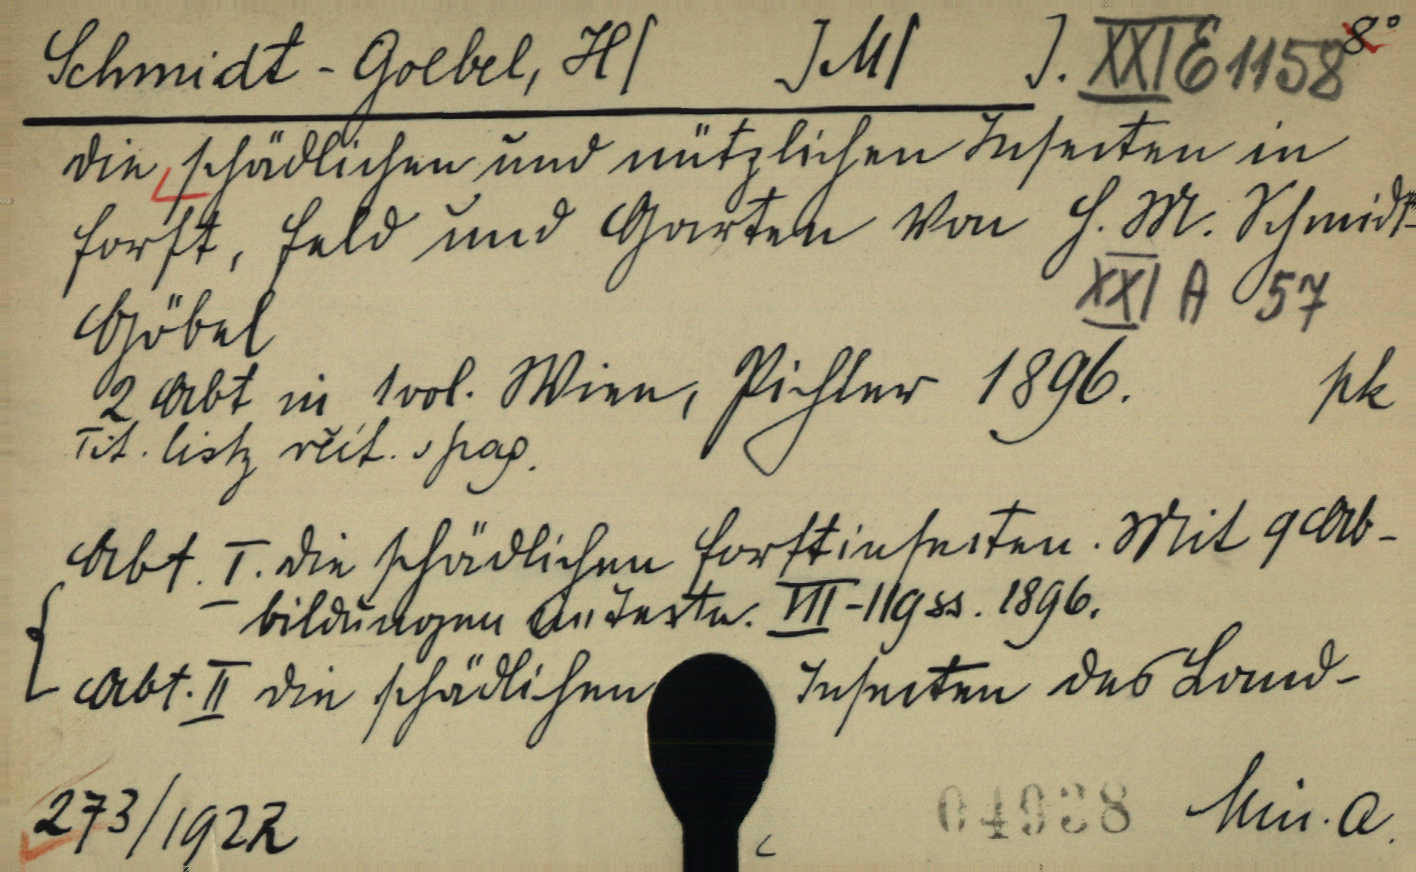 Schmidt-Goebel, H/ ]M/ J. XXI E 1158 8°
Die schädlichen und nützlichen Insecten in
Forst, Feld und Garten von H. M. Schmidt-
XXI A 57
Göbel
2 Abt in 1 vol. Wien, Pichler 1896. pk
Tit. listz pag.
Abt. I. Die schädlichen Forstinsecten. Mit 9 Ab-
bildungen im Texte. VIII-119 ss. 1896.
Abt. II Die schädlichen Insecten des Land-
273/1922 04938 Min. a.